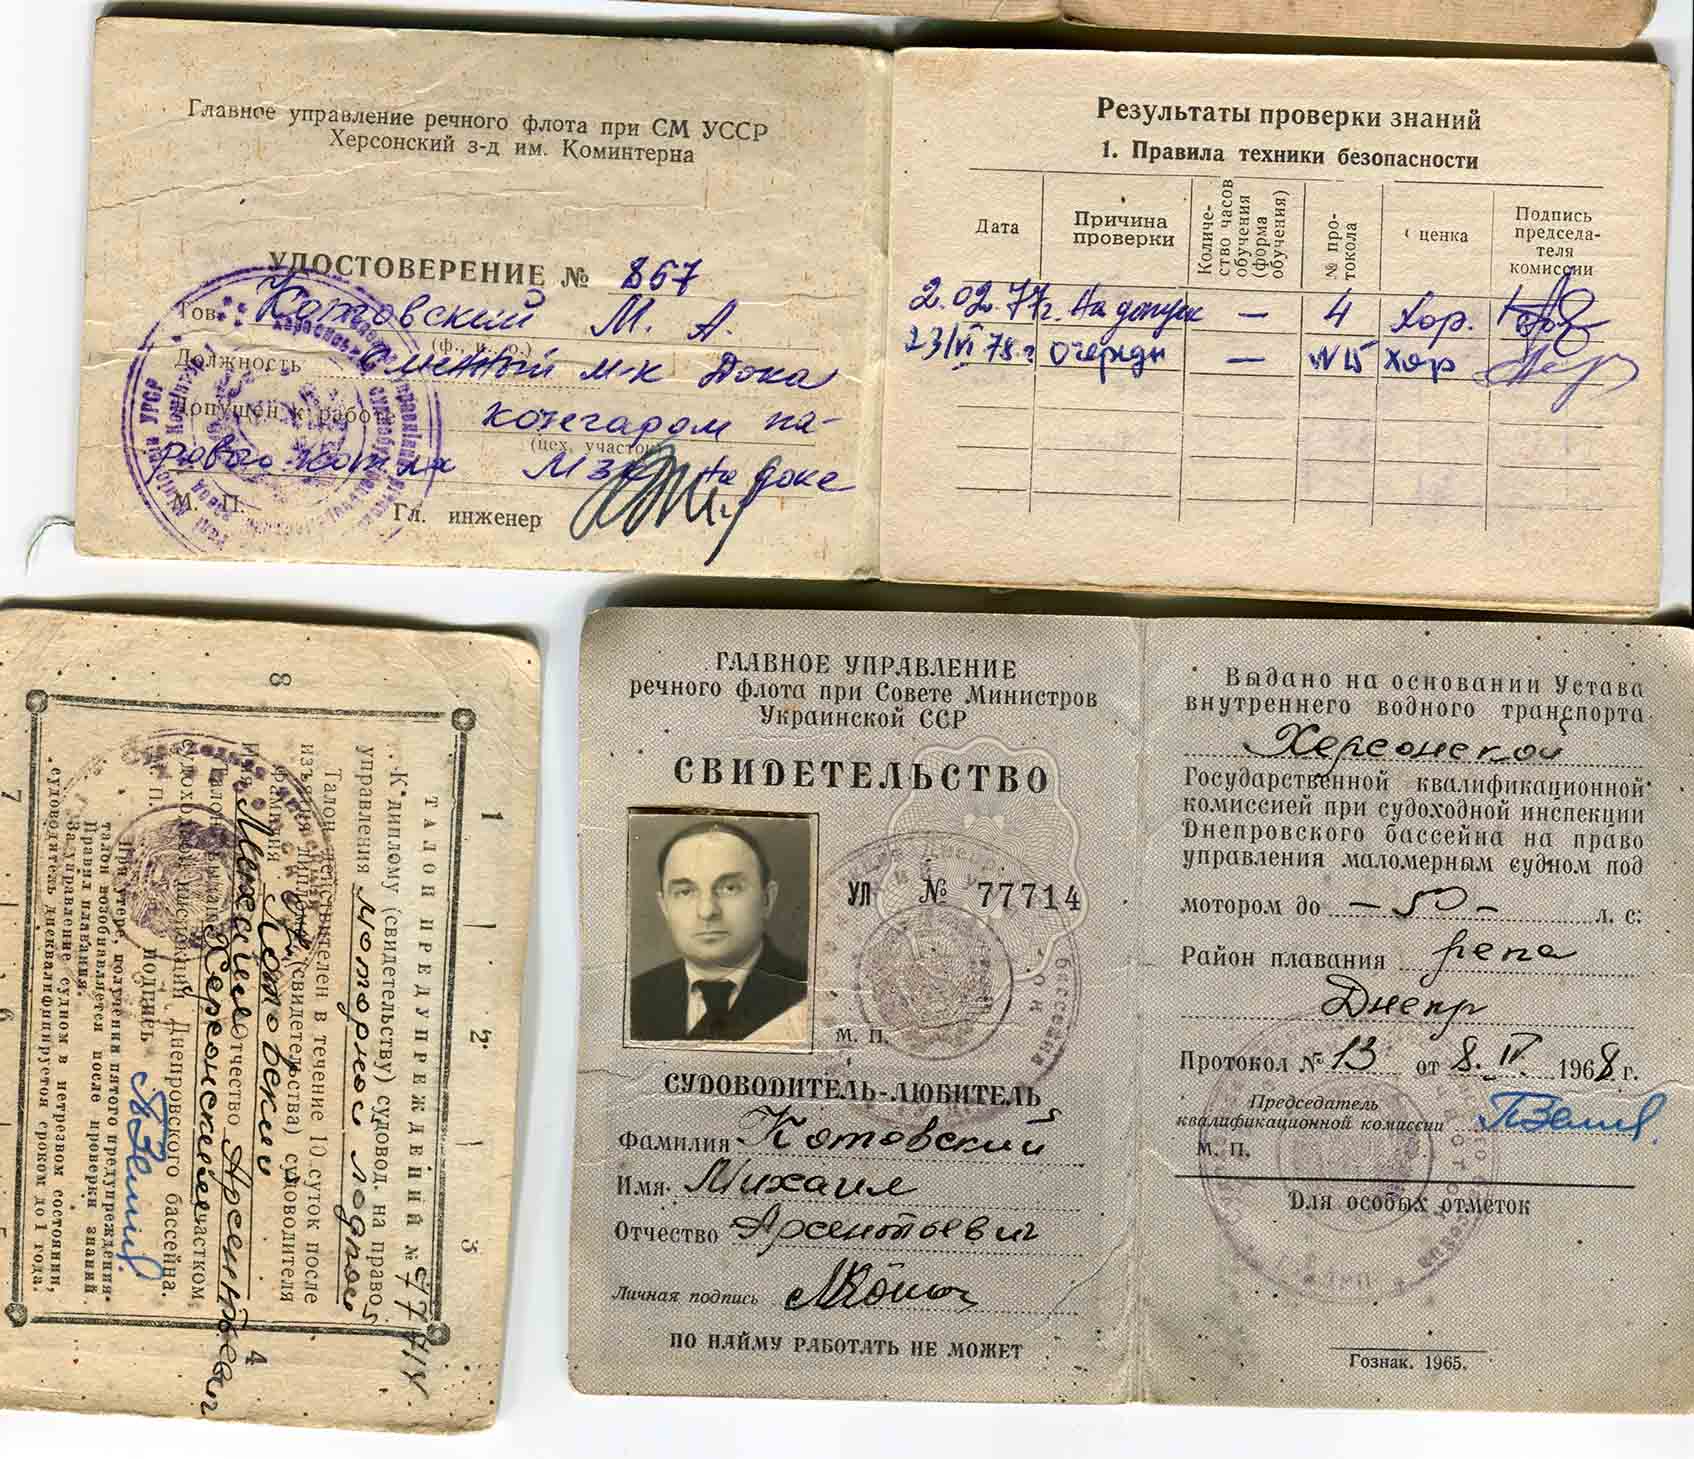 Главное управление речного флота при СМ УССР
Херсонский з-д им. Коминтерна
УДОСТОВЕРЕНИЕ № 867
Тов. Котовский М. А.
(ф., и., о.)
Должность Сменный м-к Дока
Допущен к работе кочегаром па-
(цех, участок)
рового котла на доке
М. П.
Гл. инженер
Результаты проверки знаний
1. Правила техники безопасности
Дата
Причина проверки
Количе-
ство часов
обучения
(форма
обучения)
№ про-
токола
ценка
Подпись
председа-
теля
комиссии
2.02.77г. На допуск — 4 Хор.
23/VI 78г. очередн — N15 хор
1
2
3
4
5
6
7
8
ТАЛОН ПРЕДУПРЕЖДЕНИЙ № 77714
К диплому (свидетельству) судовод. на право
управления моторной лодкой
Талон действителен в течение 10 суток после
изъятия диплома (свидетельства) судоводителя
Фамилия Котовский
Имя Михаил Отчество Арсентьевич
Талон выдан Херсонским участком
судоходной инспекции Днепровского бассейна.
М. П. подпись
При утере, получении пятого предупреждения-
талон возобнавляется после проверки знаний
Правил плавания.
За управление судном в нетрезвом состоянии,
судоводитель дисквалифицируется сроком до 1 года.
ГЛАВНОЕ УПРАВЛЕНИЕ
речного флота при Совете Министров
Украинской ССР
СВИДЕТЕЛЬСТВО
УЛ № 77714
М. П.
СУДОВОДИТЕЛЬ-ЛЮБИТЕЛЬ
Фамилия Котовский
Имя Михаил
Отчество Арсентьевич
Личная подпись
ПО НАЙМУ РАБОТАТЬ НЕ МОЖЕТ
Выдано на основании Устава
внутреннего водного транспорта
Херсонской
Государственной квалификационной
комиссией при судоходной инспекции
Днепровского бассейна на право
управления маломерным судном под
мотором до — 50 — л. с:
Район плавания река
Днепр
Протокол № 13 от 8. IV. 1968 г.
Председатель
квалификационной комиссии
М. П.
Для особых отметок
Гознак. 1965.